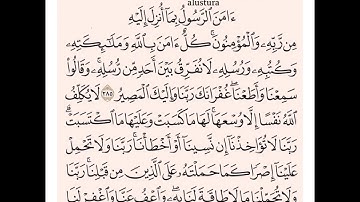 alustura
ءَامَنَ ٱلرَّسُولُ بِمَآ أُنزِلَ إِلَيْهِ
مِن رَّبِّهِۦ وَٱلْمُؤْمِنُونَ ۚ كُلٌّ ءَامَنَ بِٱللَّهِ وَمَلَـٰٓئِكَتِهِۦ
وَكُتُبِهِۦ وَرُسُلِهِۦ لَا نُفَرِّقُ بَيْنَ أَحَدٍ مِّن رُّسُلِهِۦ ۚ وَقَالُوا۟
سَمِعْنَا وَأَطَعْنَا ۖ غُفْرَانَكَ رَبَّنَا وَإِلَيْكَ ٱلْمَصِيرُ ٢٨٥ لَا يُكَلِّفُ
ٱللَّهُ نَفْسًا إِلَّا وُسْعَهَا ۚ لَهَا مَا كَسَبَتْ وَعَلَيْهَا مَا ٱكْتَسَبَتْ ۗ
رَبَّنَا لَا تُؤَاخِذْنَآ إِن نَّسِينَآ أَوْ أَخْطَأْنَا ۚ رَبَّنَا وَلَا تَحْمِلْ
عَلَيْنَآ إِصْرًا كَمَا حَمَلْتَهُۥ عَلَى ٱلَّذِينَ مِن قَبْلِنَا ۚ رَبَّنَا
وَلَا تُحَمِّلْنَا مَا لَا طَاقَةَ لَنَا بِهِۦ ۖ وَٱعْفُ عَنَّا وَٱغْفِرْ لَنَا